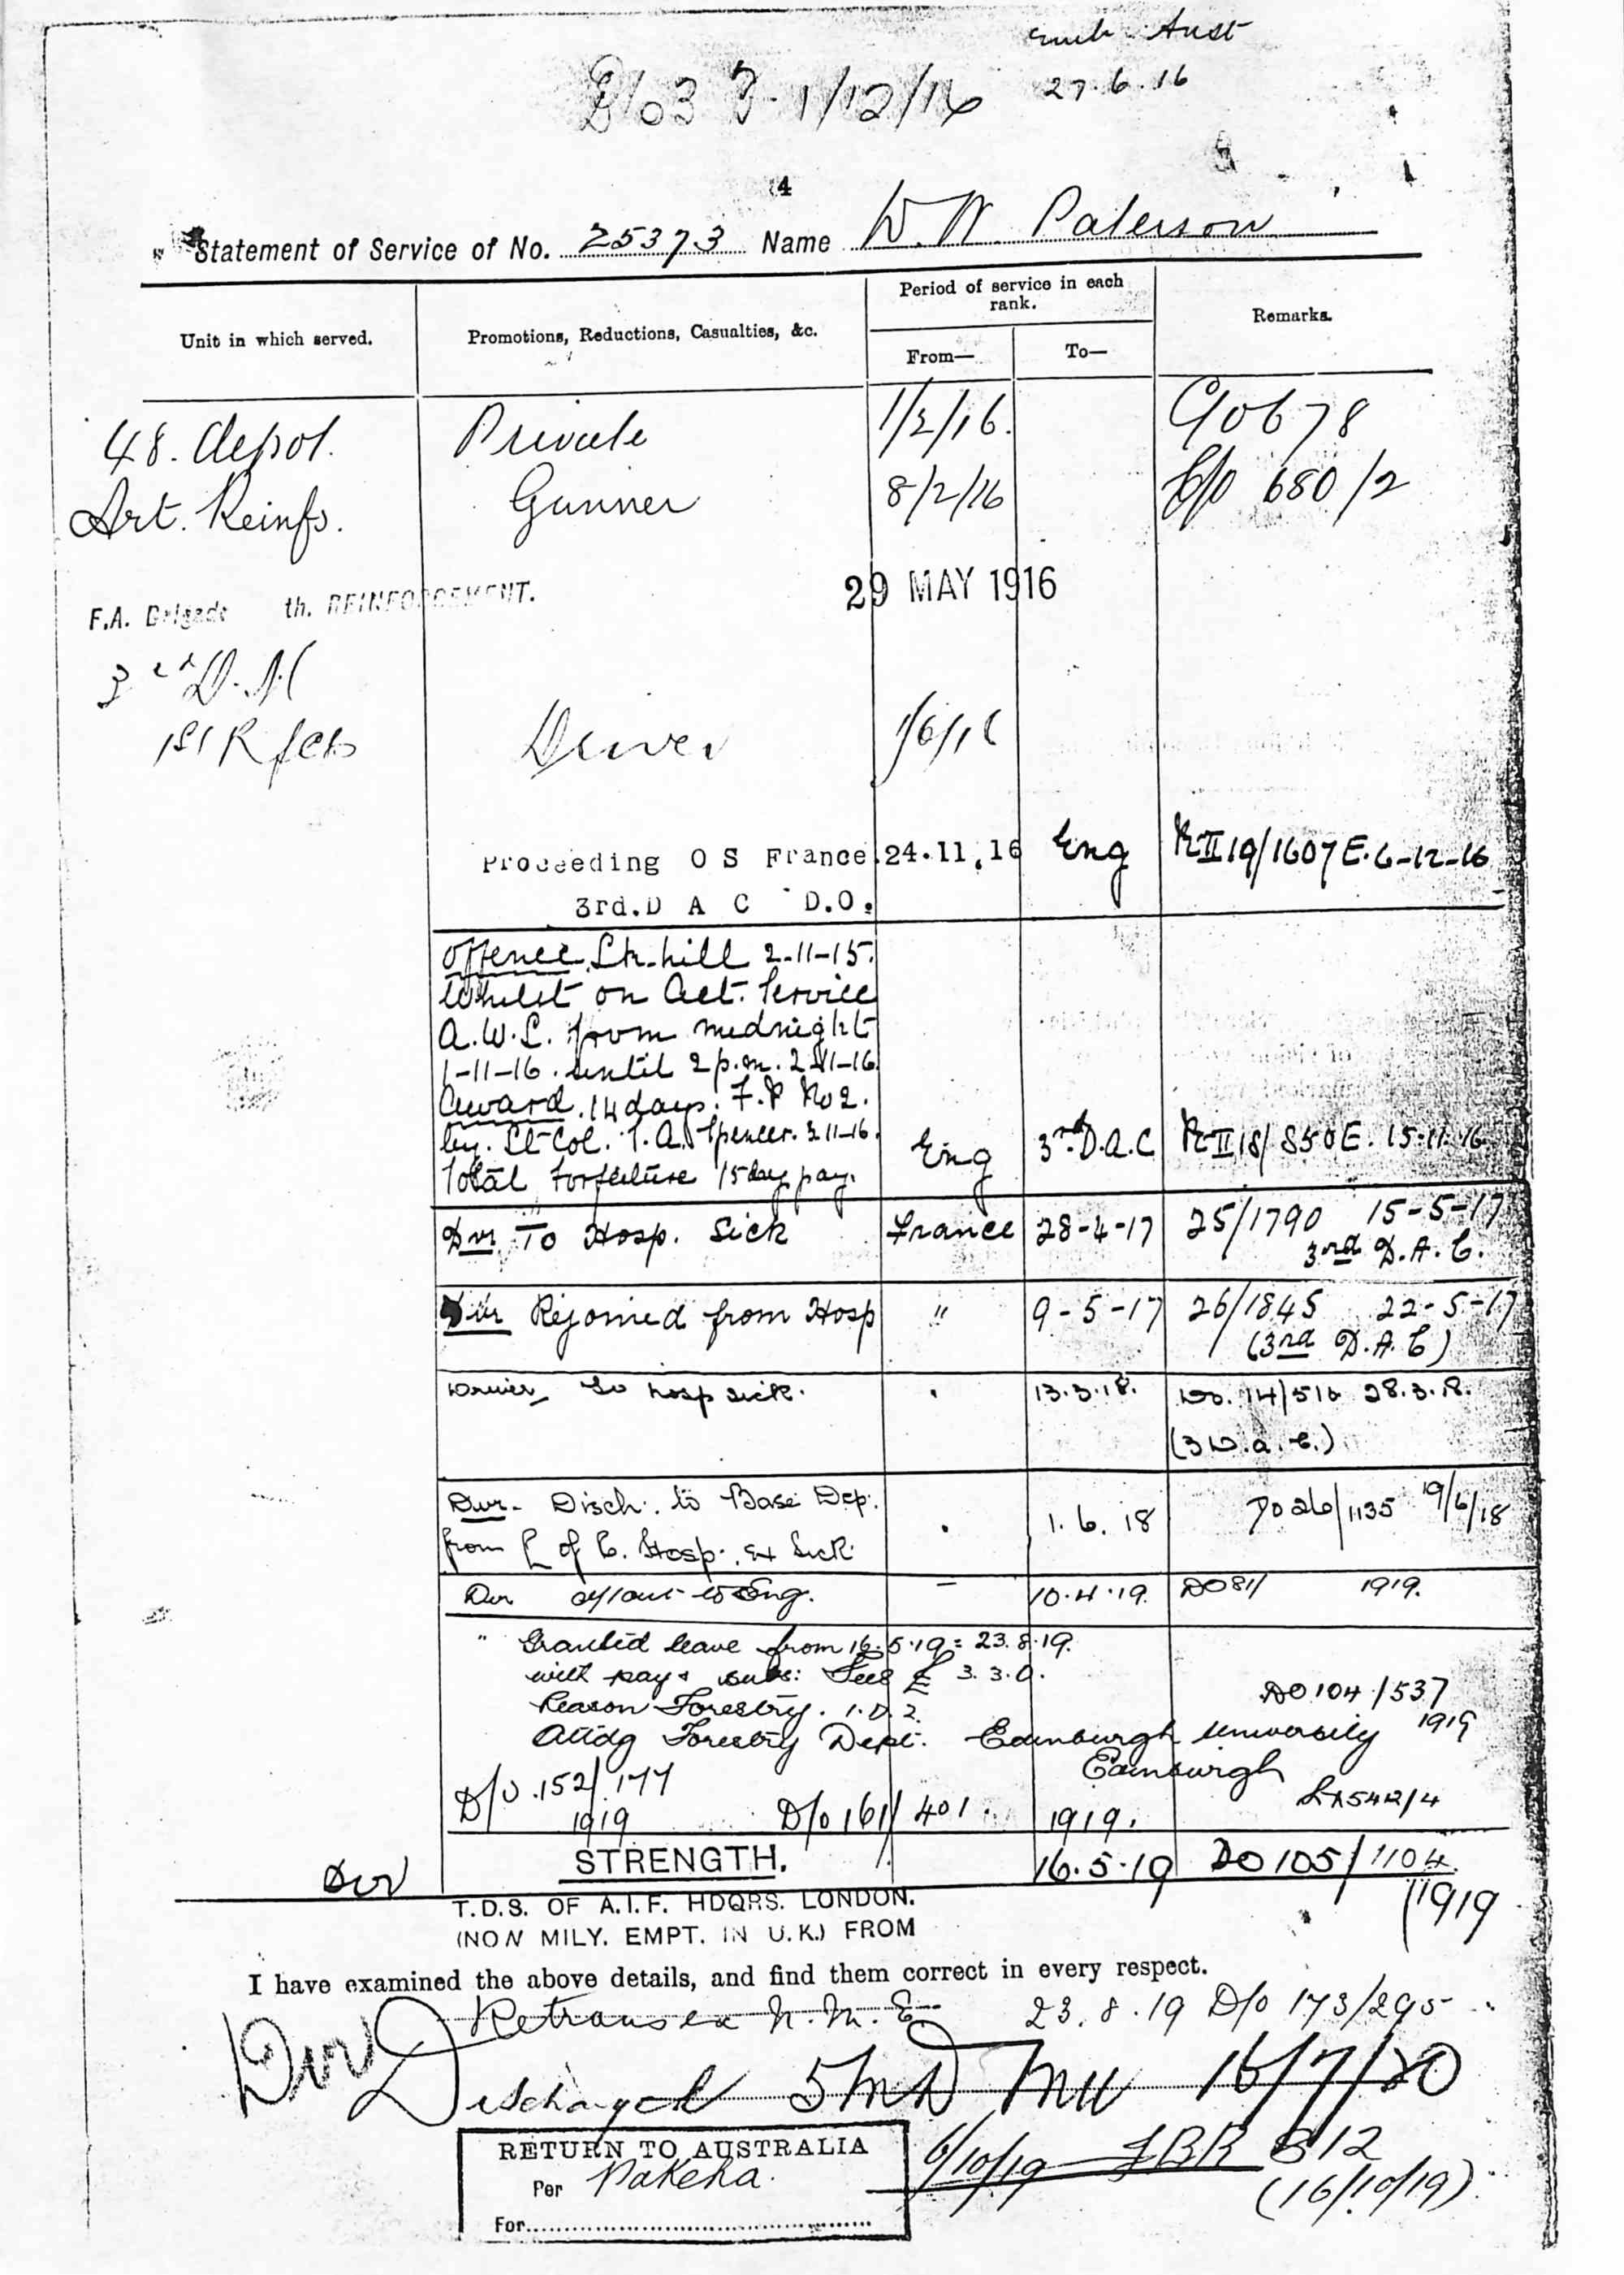 Emb. Aust
27.6.16
1/12/16
4
Statement of Service of No. 25373 Name W. W. Paterson
Unit in which served. Promotions, Reductions, Casualties, &c. Period of service in each rank. Remarks.
From— To—
48. depot. Private 1/2/16.
Art. Reinfs. Gunner 8/2/16 680/2
F.A. Brigade th. REINFORCEMENT. 29 MAY 1916
3rd D.A.C
1st Rfcts Driver 1/6/16
Proceeding O S France 24.11.16 Eng RII 19/1607 E. 6-12-16
3rd. D A C D.O.
Offence. Lk-hill 2-11-15.
Whilst on Act. Service
A.W.L. from midnight
1-11-16. until 2 p.m. 2-11-16
Award. 14 days. F.P No 2.
by. Lt Col. T. A. Spencer. 3-11-16. Eng 3rd D.A.C RII 18/850 E. 15-11-16
Total forfeiture 15 days pay.
Dvr To Hosp. Sick France 28-4-17 25/1790 15-5-17
3rd D.A.C.
Dvr Rejoined from Hosp " 9-5-17 26/1845 22-5-17
(3rd D.A.C)
Driver To hosp sick. 13.3.18. Do. 14/516 28.3.18.
(3 D.A.C.)
Dvr - Disch. to Base Dep. 1.6.18 DO 26/1135 19/6/18
from L of C. Hosp. ex Sick
Dvr to Eng. – 10.4.19. DO 81/ 1919.
" Granted leave from 16.5.19 = 23.8.19.
with pay & subs: Fees £ 3.3.0.
DO 104/537
Reason Forestry. 1.D.2. 1919
Attdg Forestry Dept. Edinburgh University
Edinburgh
D/O. 152/177
1919 D/O 161/401. 1919.
Dvr STRENGTH. 16.5.19 DO 105/1104
1919
T.D.S. OF A.I.F. HDQRS. LONDON.
(NON MILY. EMPT. IN U.K.) FROM
I have examined the above details, and find them correct in every respect.
Retrans ex N.M.E. 23.8.19 D/O 173/295
Dvr Discharged 5 MD MU 16/7/20
RETURN TO AUSTRALIA
Per Pakeha.
For
6/10/19 812
(16/10/19)